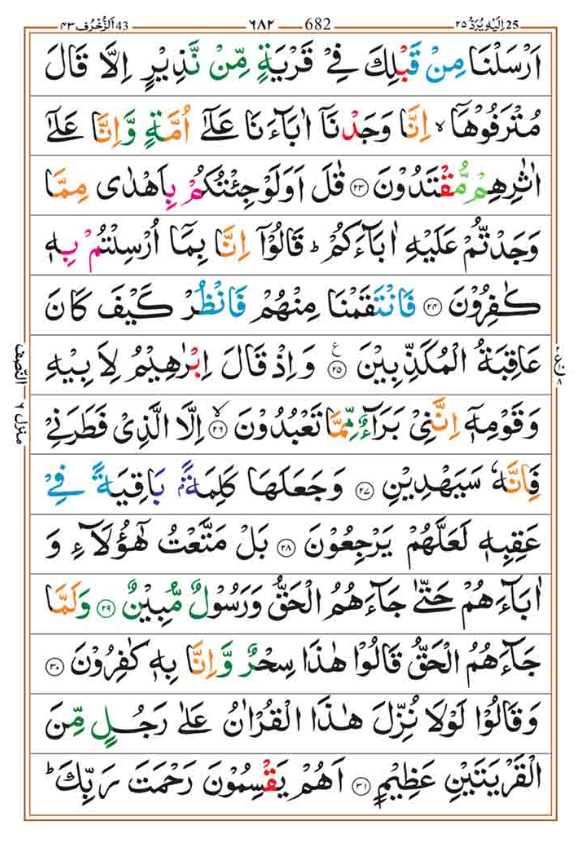 اَلزُّخْرُف ٤٣ 43 ٦٨٢ 682 اِلَیْهِ یُرَدُّ ٢٥ 25
اَرْسَلْنَا مِنْ قَبْلِكَ فِیْ قَرْیَةٍ مِّنْ نَّذِیْرٍ اِلَّا قَالَ
مُتْرَفُوْهَاۤ ۙ اِنَّا وَجَدْنَاۤ اٰبَآءَنَا عَلٰۤی اُمَّةٍ وَّاِنَّا عَلٰۤی
اٰثٰرِهِمْ مُّقْتَدُوْنَ ۝٢٣ قٰلَ اَوَلَوْ جِئْتُكُمْ بِاَهْدٰی مِمَّا
وَجَدْتُّمْ عَلَیْهِ اٰبَآءَكُمْ ؕ قَالُوْۤا اِنَّا بِمَاۤ اُرْسِلْتُمْ بِهٖ
كٰفِرُوْنَ ۝٢٤ فَانْتَقَمْنَا مِنْهُمْ فَانْظُرْ كَیْفَ كَانَ
عَاقِبَةُ الْمُكَذِّبِیْنَ ۝٢٥ ع وَاِذْ قَالَ اِبْرٰهِیْمُ لِاَبِیْهِ
وَقَوْمِهٖۤ اِنَّنِیْ بَرَآءٌ مِّمَّا تَعْبُدُوْنَ ۝٢٦ۙ اِلَّا الَّذِیْ فَطَرَنِیْ
فَاِنَّهٗ سَیَهْدِیْنِ ۝٢٧ وَجَعَلَهَا كَلِمَةًۢ بَاقِیَةً فِیْ
عَقِبِهٖ لَعَلَّهُمْ یَرْجِعُوْنَ ۝٢٨ بَلْ مَتَّعْتُ هٰۤؤُلَآءِ وَ
اٰبَآءَهُمْ حَتّٰی جَآءَهُمُ الْحَقُّ وَرَسُوْلٌ مُّبِیْنٌ ۝٢٩ وَلَمَّا
جَآءَهُمُ الْحَقُّ قَالُوْا هٰذَا سِحْرٌ وَّاِنَّا بِهٖ كٰفِرُوْنَ ۝٣٠
وَقَالُوْا لَوْلَا نُزِّلَ هٰذَا الْقُرْاٰنُ عَلٰی رَجُلٍ مِّنَ
الْقَرْیَتَیْنِ عَظِیْمٍ ۝٣١ اَهُمْ یَقْسِمُوْنَ رَحْمَتَ رَبِّكَ ؕ
النّصف
منزل ٦